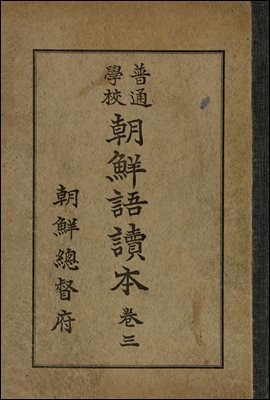 普通學校
朝鮮語讀本 卷三
朝鮮總督府